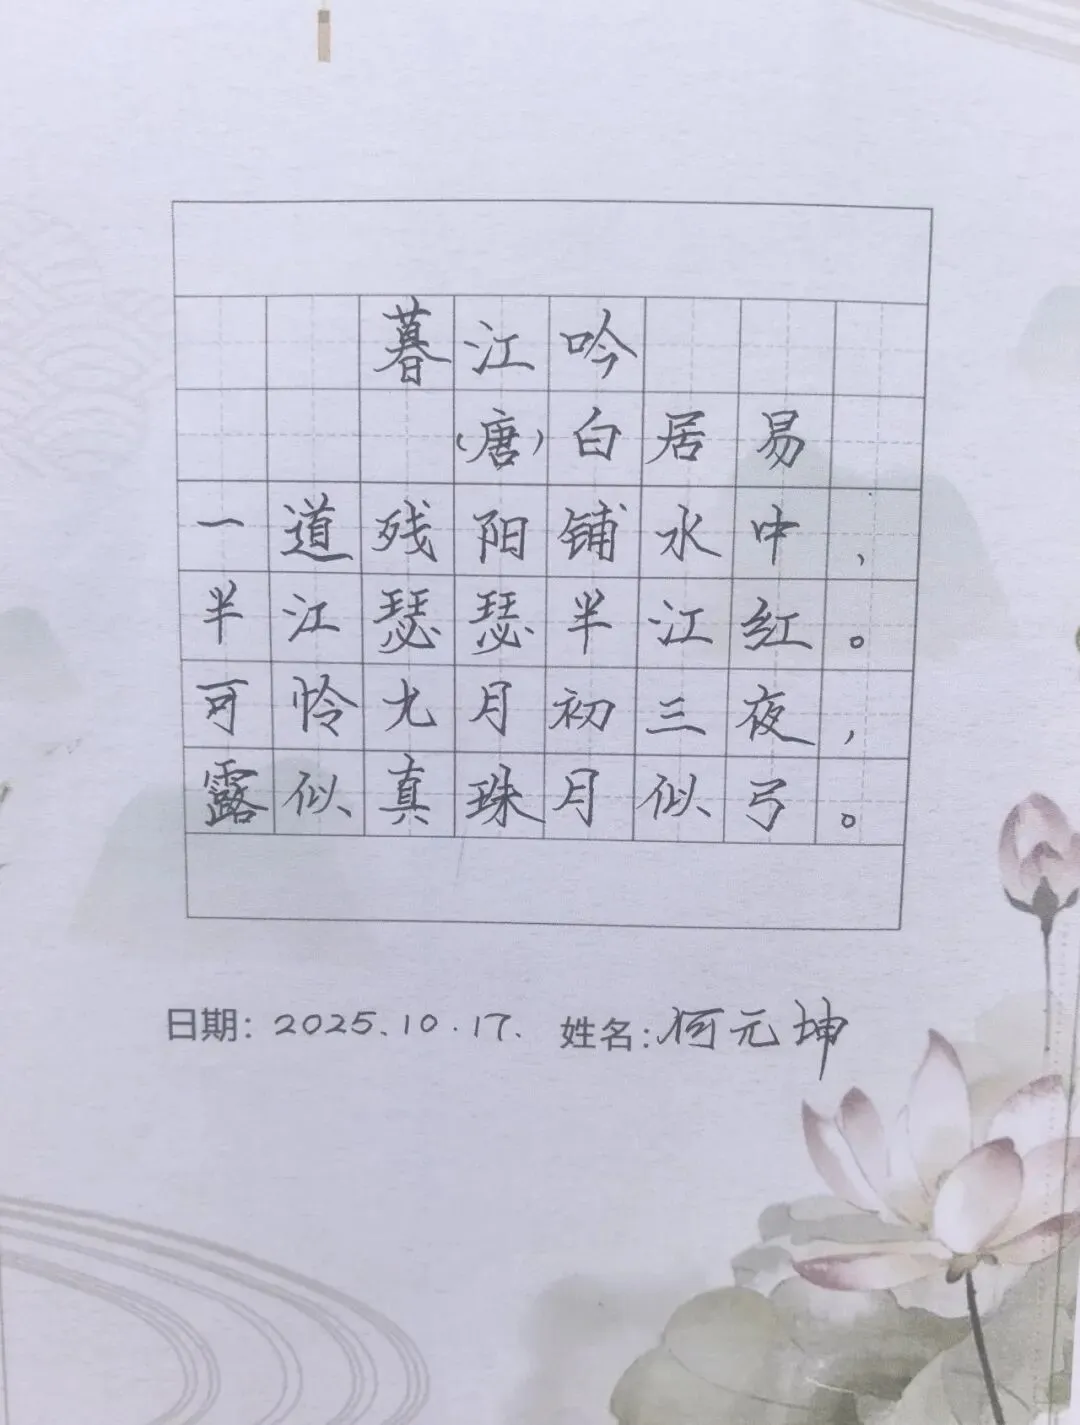 暮江吟
(唐)白居易
一道残阳铺水中,
半江瑟瑟半江红。
可怜九月初三夜,
露似真珠月似弓。
日期: 2025.10.17. 姓名: 何元坤